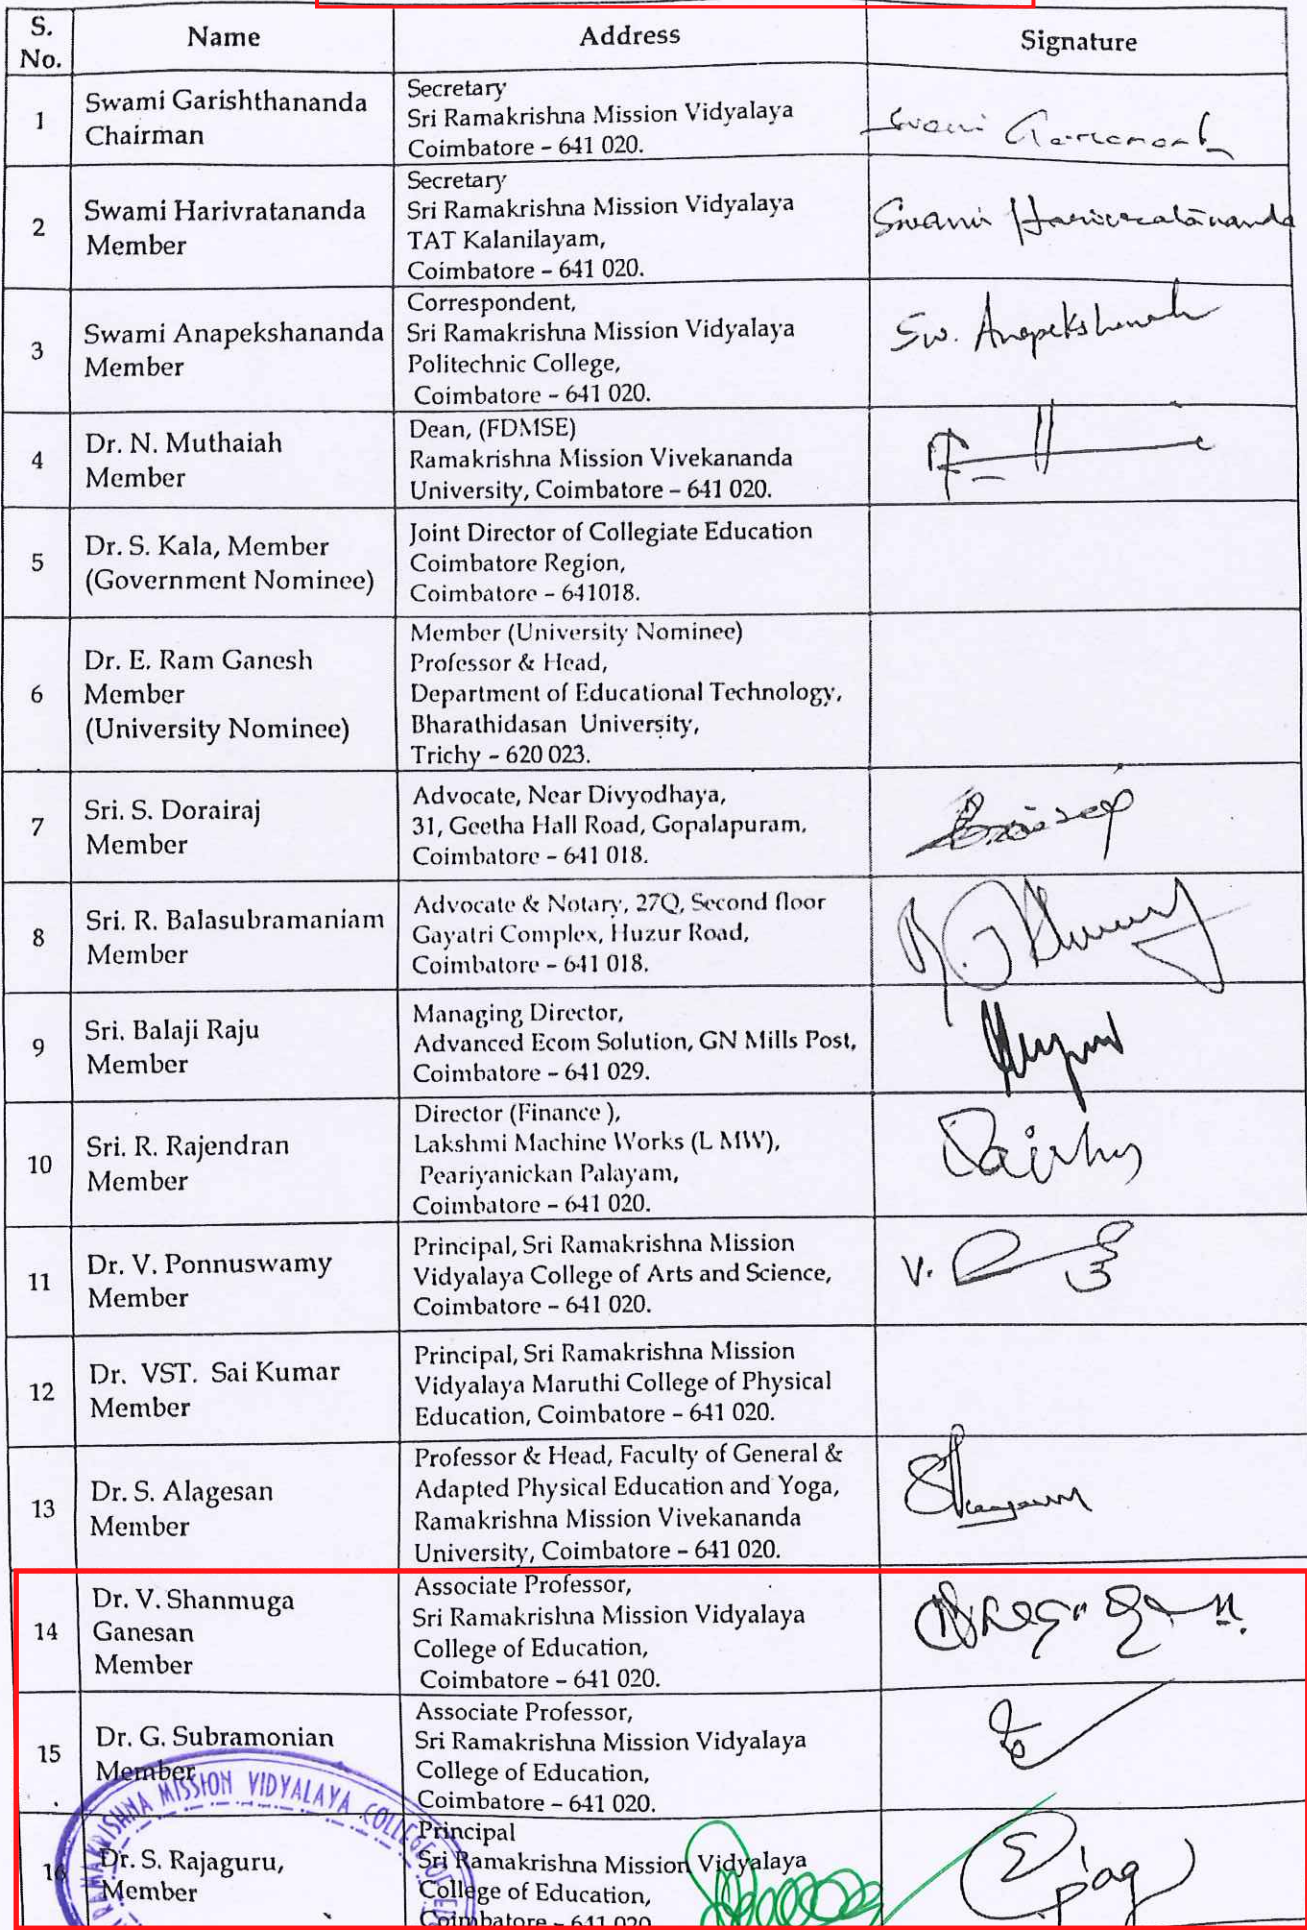 S. No. Name Address Signature
1
Swami Garishthananda
Chairman
Secretary
Sri Ramakrishna Mission Vidyalaya
Coimbatore – 641 020.
Swami
2
Swami Harivratananda
Member
Secretary
Sri Ramakrishna Mission Vidyalaya
TAT Kalanilayam,
Coimbatore – 641 020.
Swami Harivratānanda
3
Swami Anapekshananda
Member
Correspondent,
Sri Ramakrishna Mission Vidyalaya
Politechnic College,
Coimbatore – 641 020.
Sw.
4
Dr. N. Muthaiah
Member
Dean, (FDMSE)
Ramakrishna Mission Vivekananda
University, Coimbatore – 641 020.
5
Dr. S. Kala, Member
(Government Nominee)
Joint Director of Collegiate Education
Coimbatore Region,
Coimbatore – 641018.
6
Dr. E. Ram Ganesh
Member
(University Nominee)
Member (University Nominee)
Professor & Head,
Department of Educational Technology,
Bharathidasan University,
Trichy – 620 023.
7
Sri. S. Dorairaj
Member
Advocate, Near Divyodhaya,
31, Geetha Hall Road, Gopalapuram,
Coimbatore – 641 018.
8
Sri. R. Balasubramaniam
Member
Advocate & Notary, 27Q, Second floor
Gayatri Complex, Huzur Road,
Coimbatore – 641 018.
9
Sri. Balaji Raju
Member
Managing Director,
Advanced Ecom Solution, GN Mills Post,
Coimbatore – 641 029.
10
Sri. R. Rajendran
Member
Director (Finance ),
Lakshmi Machine Works (L MW),
Peariyanickan Palayam,
Coimbatore – 641 020.
11
Dr. V. Ponnuswamy
Member
Principal, Sri Ramakrishna Mission
Vidyalaya College of Arts and Science,
Coimbatore – 641 020.
V.
12
Dr. VST. Sai Kumar
Member
Principal, Sri Ramakrishna Mission
Vidyalaya Maruthi College of Physical
Education, Coimbatore – 641 020.
13
Dr. S. Alagesan
Member
Professor & Head, Faculty of General &
Adapted Physical Education and Yoga,
Ramakrishna Mission Vivekananda
University, Coimbatore – 641 020.
14
Dr. V. Shanmuga
Ganesan
Member
Associate Professor,
Sri Ramakrishna Mission Vidyalaya
College of Education,
Coimbatore – 641 020.
15
Dr. G. Subramonian
Member
Associate Professor,
Sri Ramakrishna Mission Vidyalaya
College of Education,
Coimbatore – 641 020.
16
Dr. S. Rajaguru,
Member
Principal
Sri Ramakrishna Mission Vidyalaya
College of Education,
Coimbatore – 641 020
RAMAKRISHNA MISSION VIDYALAYA COLLEGE OF